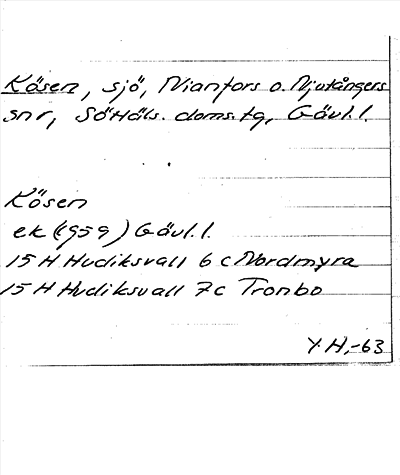 Kösen, sjö, Nianfors o. Njutångers
snr, SöHäls. doms.tg, Gävl.l.
Kösen
ek (1959) Gävl.l.
15 H Hudiksvall 6 c Nordmyra
15 H Hudiksvall 7c Trombo
Y.H.-63